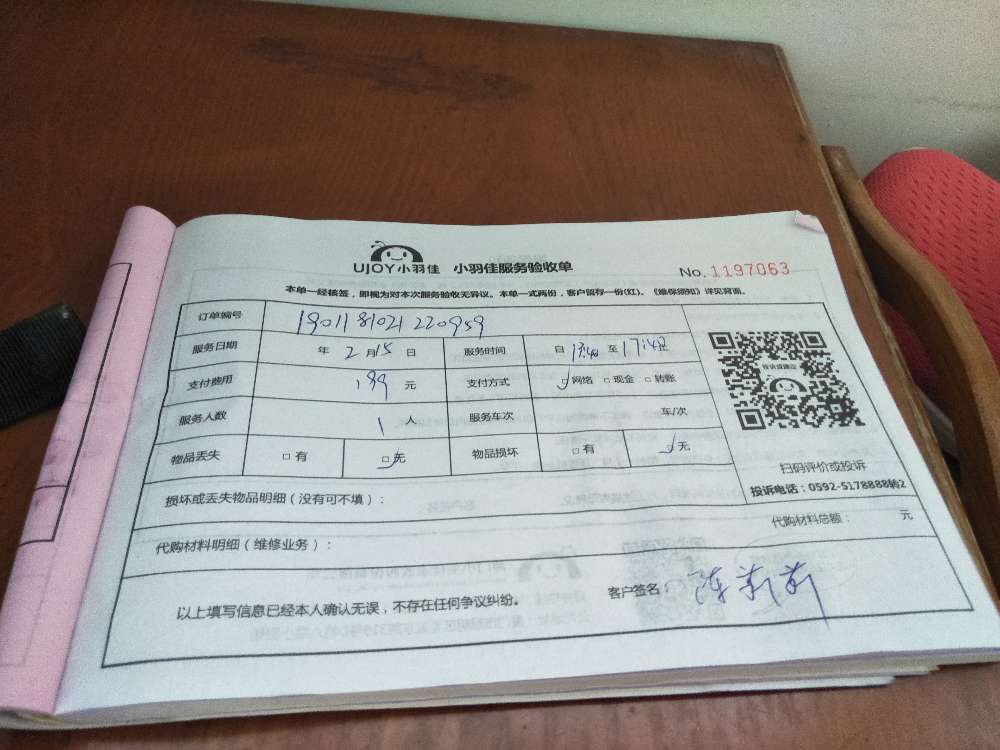 UJOY小羽佳 小羽佳服务验收单 No.1197063
本单一经核签，即视为对本次服务验收无异议。本单一式两份，客户留存一份(红)。《维保须知》详见背面。
订单编号 1901181021220959
服务日期 年 2 月 15 日 服务时间 自 13:48 至 17:48 止
支付费用 199 元 支付方式 ☑网络 □现金 □转账
服务人数 1 人 服务车次 车/次
物品丢失 □有 ☑无 物品损坏 □有 ☑无
投诉或建议
扫码评价或投诉
投诉电话：0592-5178888转2
损坏或丢失物品明细（没有可不填）：
代购材料明细（维修业务）： 代购材料总额： 元
以上填写信息已经本人确认无误，不存在任何争议纠纷。 客户签名：陈莉莉